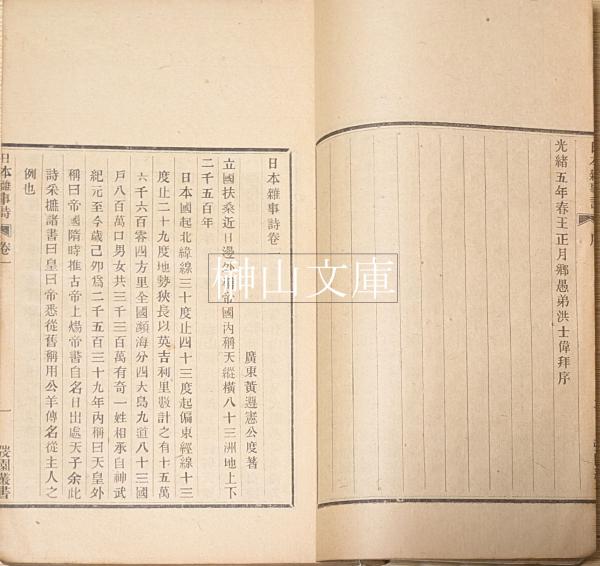 日本雜事詩 序
光緒五年春王正月鄉愚弟洪士偉拜序
日本雜事詩卷一
廣東黃遵憲公度著
立國扶桑近日邊外稱帝國內稱天縱橫八十三洲地上下
二千五百年
日本國起北緯線三十度止四十三度起偏東經線十三
度止二十九度地勢狹長以英吉利里數計之有十五萬
六千六百零四方里全國瀕海分四大島九道八十三國
戶八百萬口男女共三千三百萬有奇一姓相承自神武
紀元至今歲己卯為二千五百三十九年內稱曰天皇外
稱曰帝國隋時推古帝上煬帝書自名日出處天子余此
詩采摭諸書曰皇曰帝悉從舊稱用公羊傳名從主人之
例也
日本雜事詩 卷一
一
榊山文庫